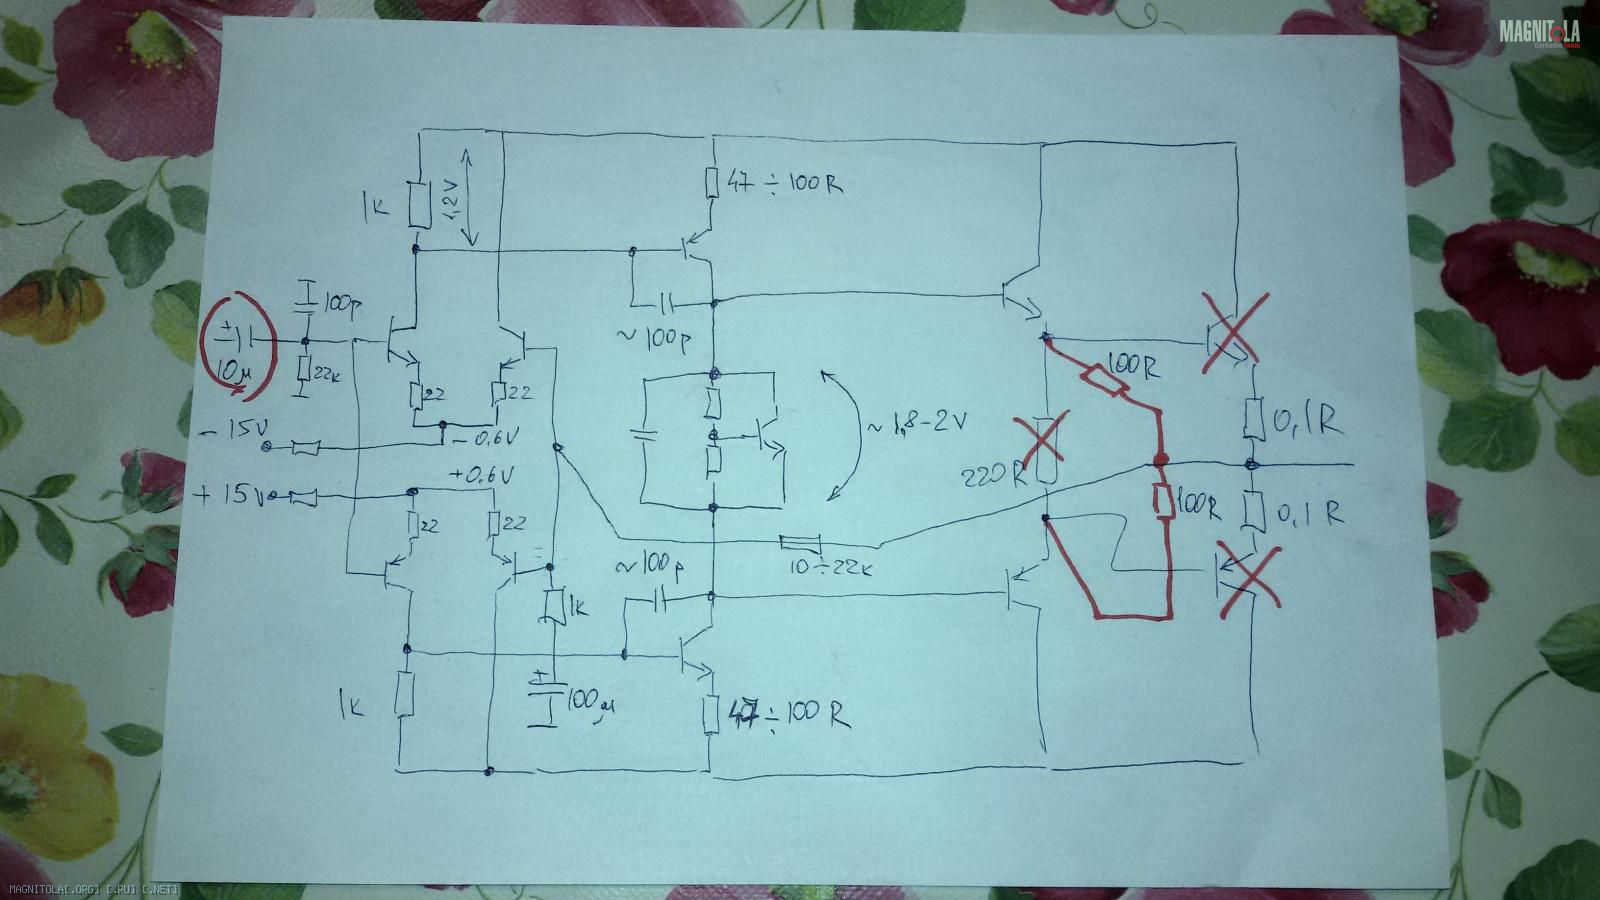 MAGNITOLA
CarAudio room
47 ÷ 100R
1K
1,2V
100p
+
10µ
22K
~100p
22
22
100R
~ 1,8-2V
0,1R
- 15V
- 0.6V
+0.6V
220R
+ 15V
100R
0,1 R
22
22
10÷22K
~100p
1K
1K
+
100µ
47 ÷ 100 R
MAGNITOLA[.ORG] [.RU] [.NET]